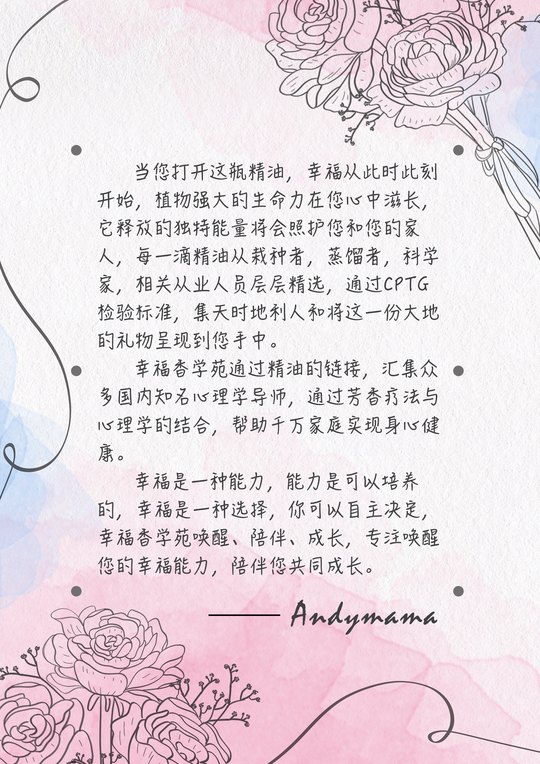 当您打开这瓶精油，幸福从此时此刻
开始，植物强大的生命力在您心中滋长，
它释放的独特能量将会照护您和您的家
人，每一滴精油从栽种者，蒸馏者，科学
家，相关从业人员层层精选，通过CPTG
检验标准，集天时地利人和将这一份大地
的礼物呈现到您手中。
幸福香学苑通过精油的链接，汇集众
多国内知名心理学导师，通过芳香疗法与
心理学的结合，帮助千万家庭实现身心健
康。
幸福是一种能力，能力是可以培养
的，幸福是一种选择，你可以自主决定，
幸福香学苑唤醒、陪伴、成长，专注唤醒
您的幸福能力，陪伴您共同成长。
——Andymama